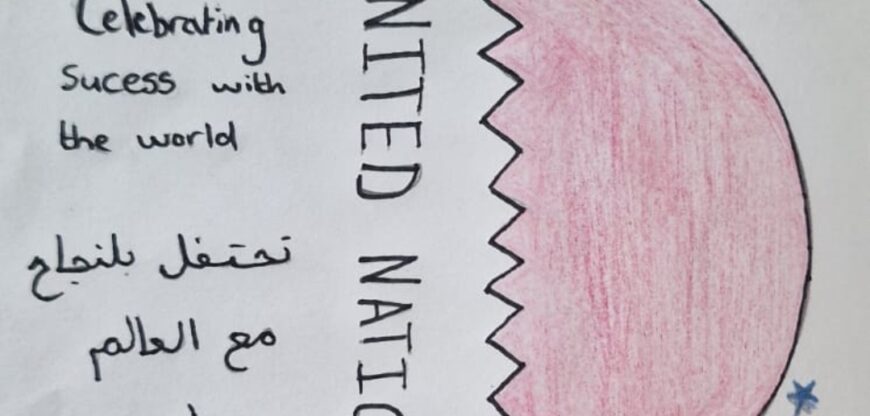 Celebrating
Sucess with
the world
تحتفل بلنجاح
مع العالم
NITED NATIO